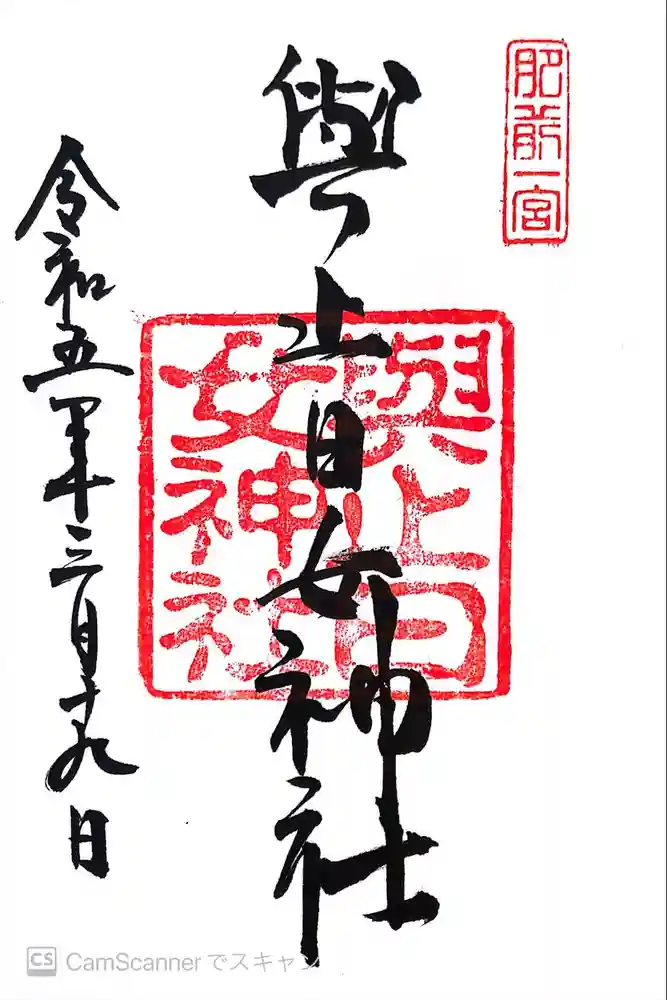 肥前一宮
與止日女神社
與止日
女神社
令和五年三月十九日
CS CamScanner でスキャン